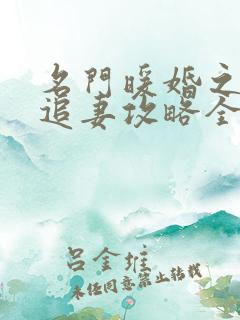 名門暖婚之
追妻攻略全
呂金堆
未经同意禁止转载